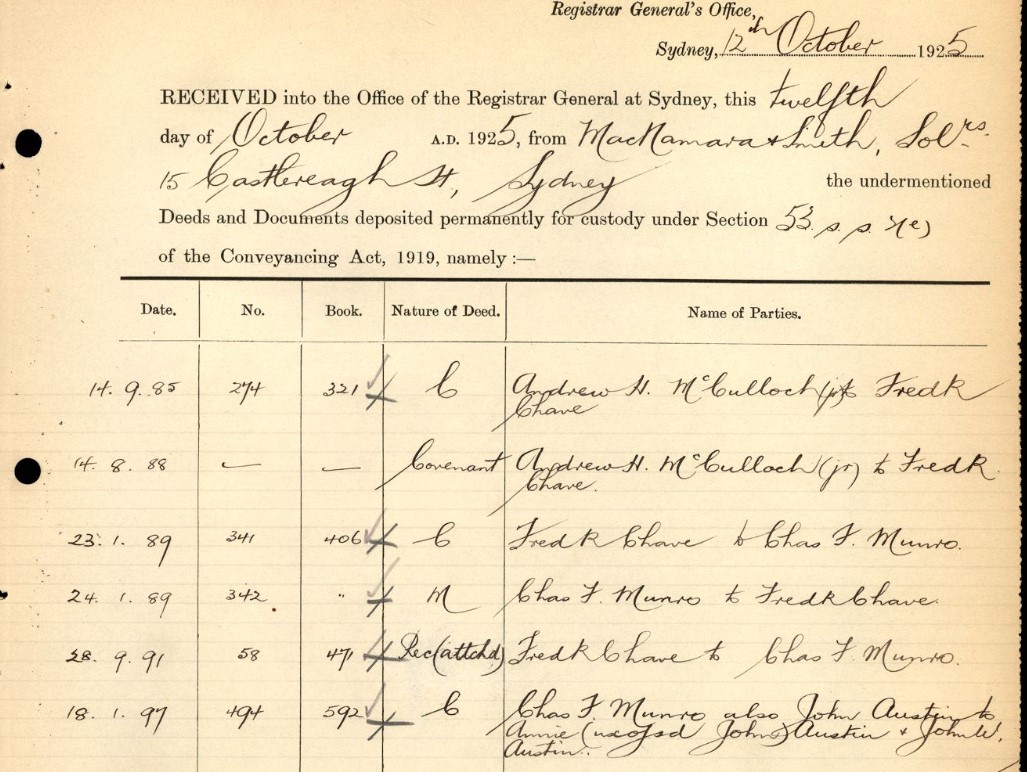 Registrar General's Office,
Sydney, 12th October 1925
RECEIVED into the Office of the Registrar General at Sydney, this twelfth
day of October A.D. 1925, from MacNamara & Smith, Solrs.
15 Castlereagh St, Sydney the undermentioned
Deeds and Documents deposited permanently for custody under Section 53 s.s.
of the Conveyancing Act, 1919, namely :—
Date. No. Book. Nature of Deed. Name of Parties.
14. 9. 85 274 321 C Andrew H. McCulloch (jr) to Fredk
Chave
14. 8. 88 — — Covenant Andrew H. McCulloch (jr) to Fredk
Chave.
23. 1. 89 341 406 C Fredk Chave to Chas F. Munro.
24. 1. 89 342 " M Chas F. Munro to Fredk Chave.
28. 9. 91 58 471 Rec(attchd) Fredk Chave to Chas F. Munro.
18. 1. 97 494 592 C Chas F. Munro also John Austin to
Annie (ux of sd John) Austin & John W.
Austin.